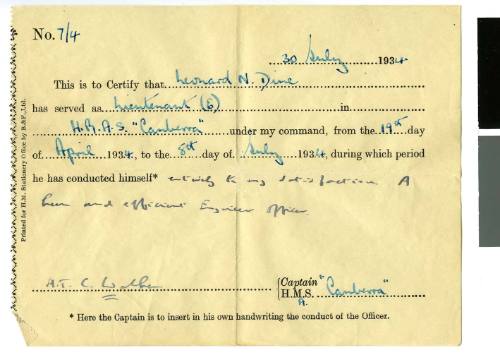 No. 7/4
30 July 1934
This is to Certify that Leonard N. Dine
has served as Lieutenant (E) in
H.M.A.S. "Canberra" under my command, from the 19th day
of April 1934, to the 8th day of July 1934, during which period
he has conducted himself* entirely to my satisfaction. A
keen and efficient Engineer Officer
Captain "Canberra"
H.M.S.
A.
* Here the Captain is to insert in his own handwriting the conduct of the Officer.
Printed for H.M. Stationery Office by B.&F., Ltd.